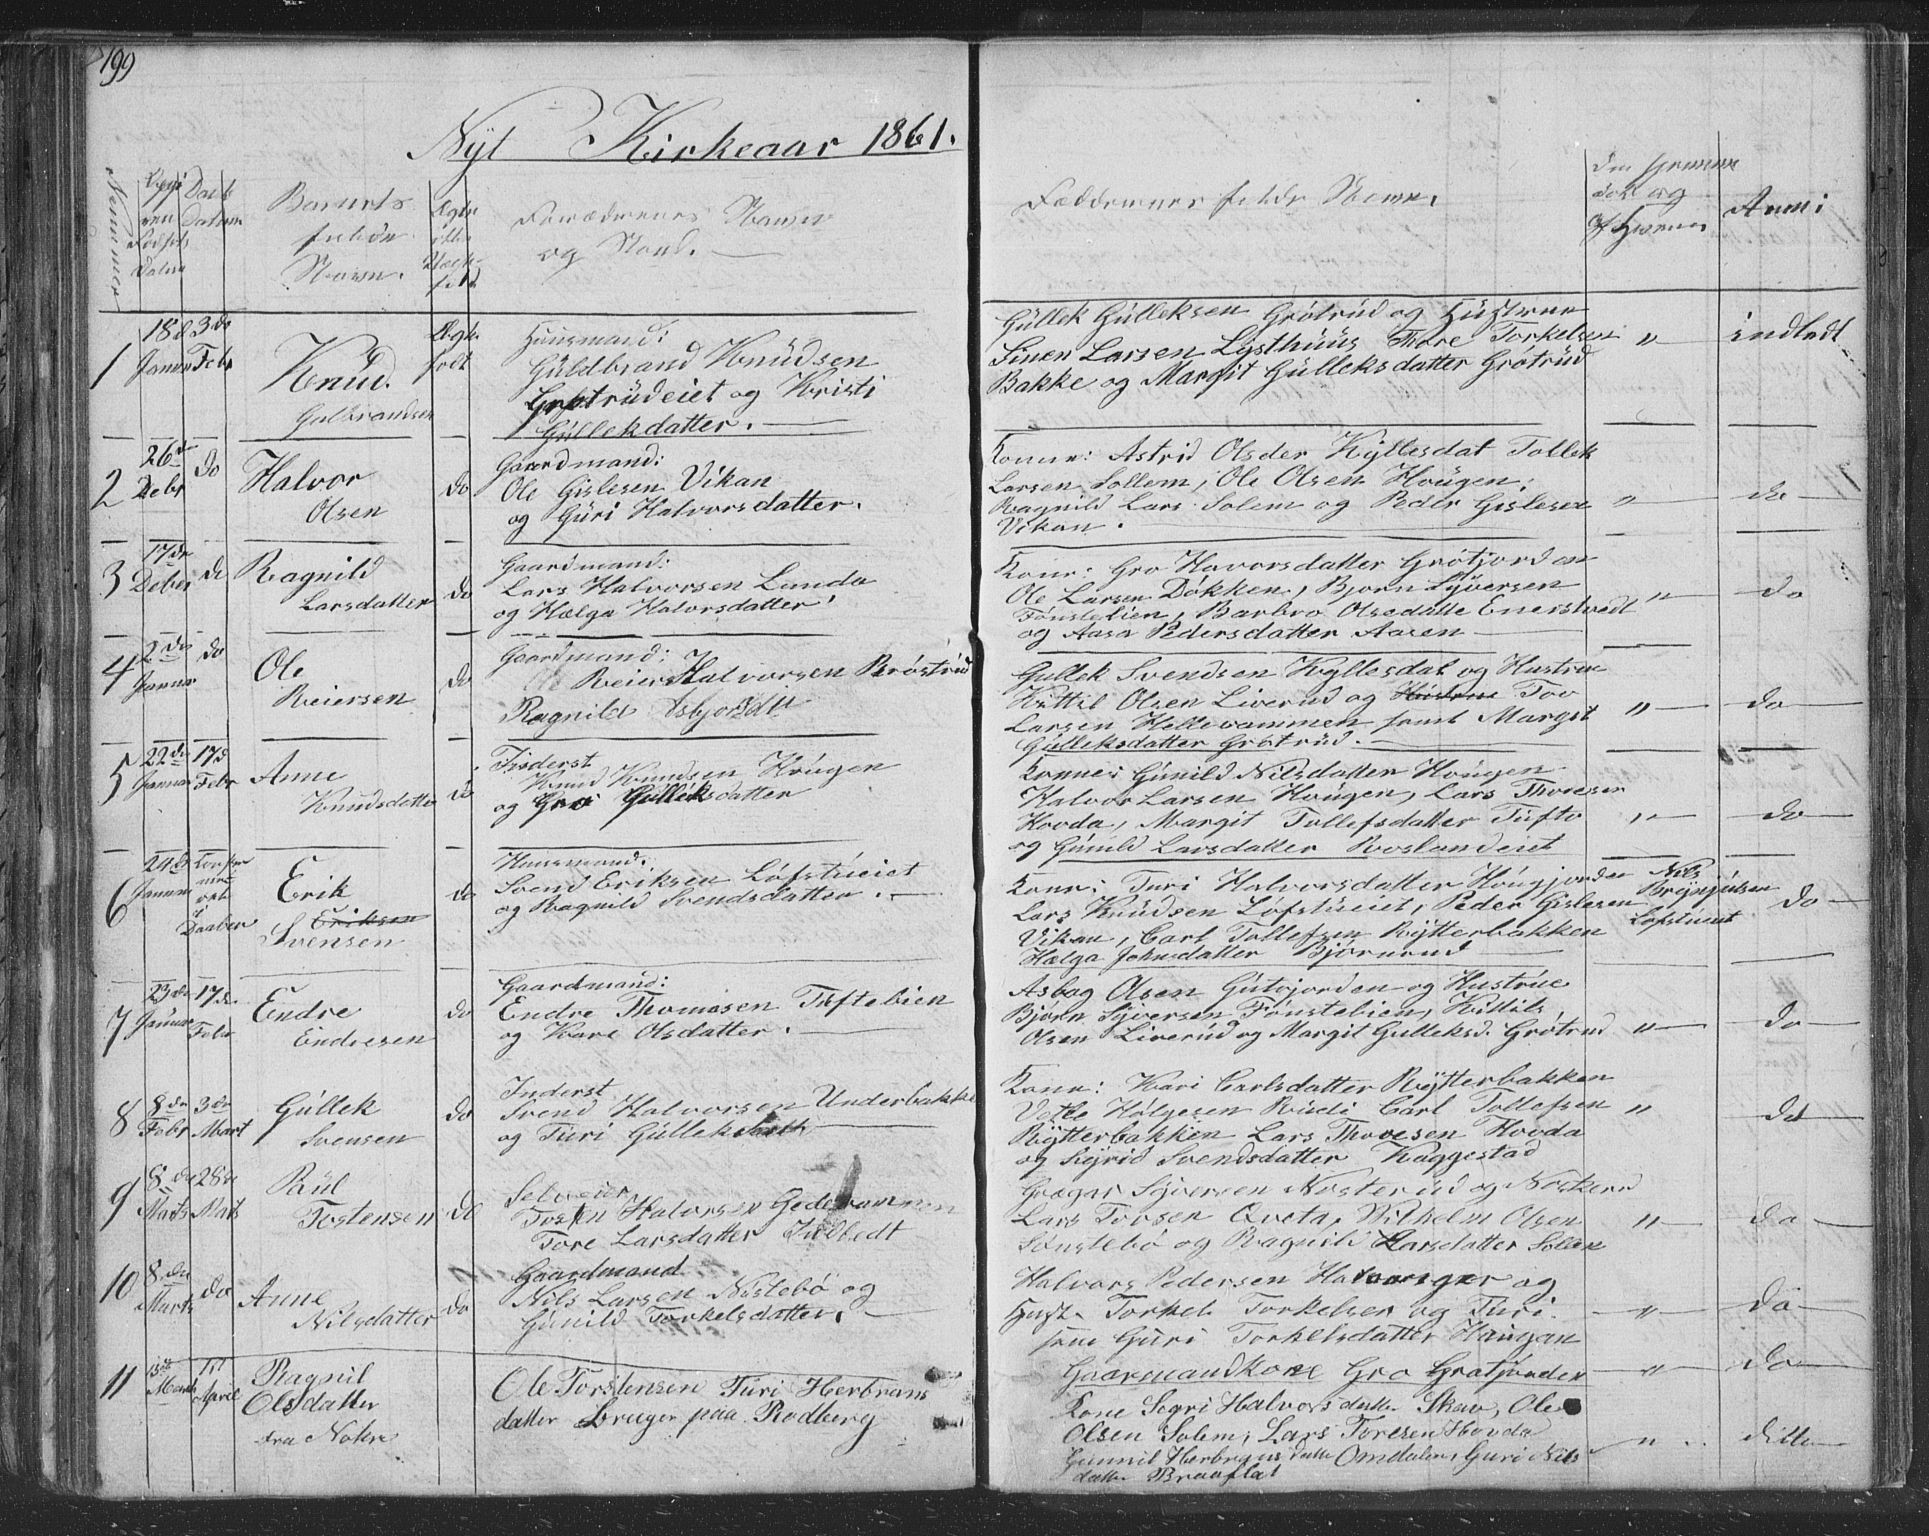 199
Nyt Kirkeaar 1861.
Nummer
Datum
Barnets
fulde
Navn.
Ægte
eller
Uægte
født
Forældrenes Navne
og Stand.
Faddernes fulde Navne.
og
Anm:
1
18de
Januar
3de
Febr
Knud.
Gulbrandsen
Ægte
født
Huusmand:
Guldbrand Knudsen
Grøtrudeiet og Kristi
Gullekdatter.
Gullek Gulleksen Grøtrud og Hustrue
Simen Larsen Lysthuus Thore Torkelsen
Bakke og Margit Gulleksdatter Grøtrud
"
indledt
2
26de
Debr
do
Halvor
Olsen
do
Gaardmand:
Ole Gislesen Vikan
og Guri Halvorsdatter.
Konne: Astrid Olsdtr Kyllesdal Tollek
Larsen Sollem, Ole Olsen Hougen,
Ragnild Lars Solem og Peder Gislesen
Vikan.
"
do
3
17de
Deber
do
Ragnild
Larsdatter
do
Gaardmand:
Lars Halvorsen Lunda
og Hælga Halvorsdatter.
Kone: Gro Havorsdatter Grøtjorden
Ole Larsen Døkken, Bjorn Syversen
Fønstebien, Barbro Olsedatte Enerstvedt
og Aasa Pedersdatter Aasen
"
do
4
2den
Januar
do
Ole
Reiersen
do
Gaardmand:
Reier Halvorsen Brøstrud
Ragnild Asbjørsdtr
Gullek Svendsen Kyllesdal og Hustrue
Kittil Olsen Liverud og Hustrue Tov
Larsen Hellevammen samt Margit
Gulleksdatter Grøtrud.
"
do
5
22de
Januar
17de
Febr
Anne
Knudsdatter
do
Inderst
Knud Knudsen Hougen
og Gro Gulleksdatter
Konne: Gunild Nilsdatter Hougen
Halvor Larsen Hougen, Lars Thoresen
Hovda, Margit Tollefsdatter Tufto
og Gunild Larsdatter Roslandeiet
"
do
6
24de
Januar
Daaben
Erik
Eriksen
Svensen
do
Huusmand.
Svend Eriksen Løfstueiet
og Ragnild Svendsdatter.
Kone: Turi Halvorsdatter Hougjorden
Lars Knudsen Løfstueiet, Peder Gislesen
Vikan, Carl Tollefsen Rytterbakken
Hælga Johnsdatter Bjørnrud
Nils
Brynjulsen
Løfstueiet
do
7
23de
Januar
17de
Febr
Endre
Endresen
do
Gaardmand:
Endre Thomasen Tuftebien
og Kare Olsdatter.
Asbag Olsen Gutujorden og Hustrue
Bjørn Syversen Fønstebien, Kittils
Olsen Liverud og Margit Gulleksd. Grøtrud
"
do
8
8de
Febr
3de
Mart
Gullek
Svensen
do
Inderst
Svend Halvorsen Underbakke
og Turi Gulleksdatt
Kone: Kari Carlsdatter Rytterbakken
Vetle Holgesen Ruidi Carl Tollefsen
Rytterbakken Lars Thoresen Hovda
og Sigrid Svendsdatter Kaggestad
"
do
9
8de
Marts
28de
Marts
Paul
Tostensen
do
Selveier
Tosten Halvorsen Godevammen
Tore Larsdatter Indledt
Grægar Syversen Nosterud og Noskerud
Lars Tovsen Qveta, Vilhelm Olsen
Sønstebø og Ragnild Larsdatter Sollem
"
do
10
8de
Marts
do
Anne
Nilsdatter
do
Gaardmand
Nils Larsen Nustebø og
Gunild Torkelsdatter.
Halvors Pedersen Halvorsger og
Hust. Torkel Torkelsen og Turi
samt Guri Torkelsdatter Haugan
"
do
11
13de
Marts
17
April
Ragnil
Olsdatter
fra Nohre
Ole Torstensen Turi Herbrans
datter Bruger paa Rødberg
Gaarmandkone Gro Grøtjorden
"
do
Kone Sogri Halvorsdatter Skav, Ole
Olsen Solem, Lars Toresen Hovda
Gunnil Herbransdatter Omdalen, Guri Nils
datter Braaflat
"
ditto